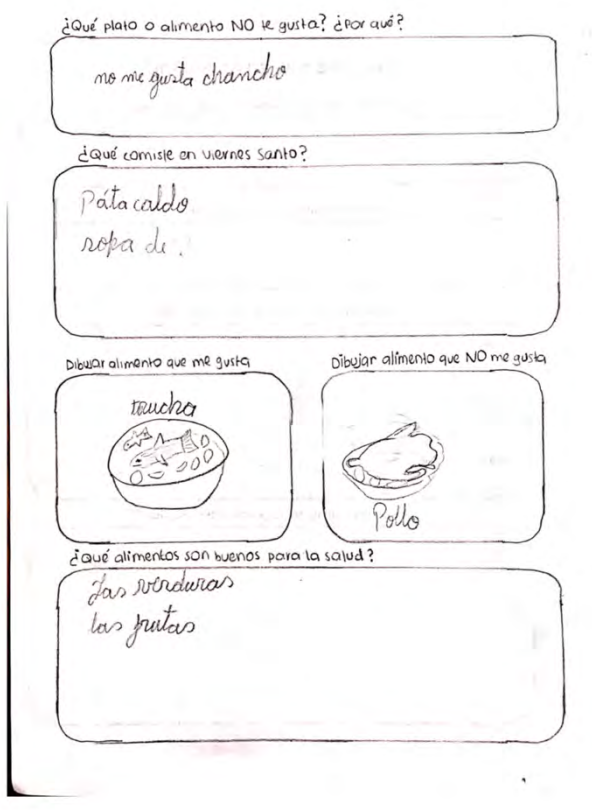 ¿Qué plato o alimento NO te gusta? ¿Por qué?
no me gusta chancho
¿Qué comiste en viernes santo?
Páta caldo
sopa de .
Dibujar alimento que me gusta
Dibujar alimento que NO me gusta
trucha
Pollo
¿Qué alimentos son buenos para la salud?
Las verduras
las frutas